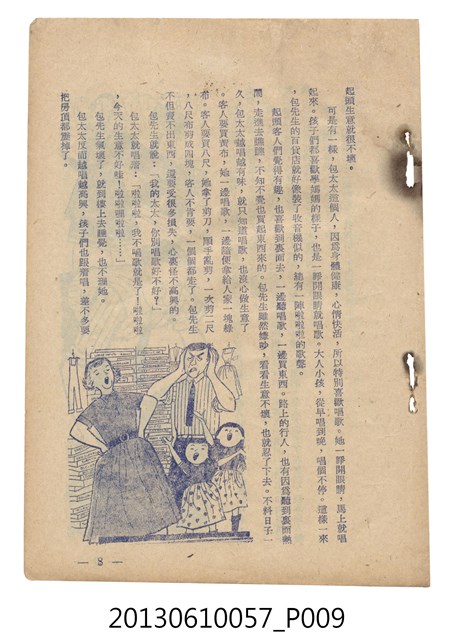 起頭生意就很不壞。
可是有一樣，包太太這個人，因爲身體健康，心情快活，所以特別喜歡唱歌。她一睜開眼睛，馬上就唱
起來。孩子們都喜歡學媽媽的樣子，也是一睜開眼睛就唱歌。大人小孩，從早唱到晚，唱個不停。這樣一來
，包先生的百貨店就好像裝了收音機似的，總有一陣啦啦啦的歌聲。
起頭客人們覺得有趣，也喜歡到裏面去，一邊聽唱歌，一邊買東西。路上的行人，也有因爲聽到裏面熱
鬧，走進去瞧瞧，不知不覺也買起東西來的。包先生雖然嫌吵，看看生意不壞，也就忍了下去。不料日子一
久，包太太越唱越有味，就只知道唱歌，也沒心做生意了
。客人要買黃布，她一邊唱歌，一邊隨便拿給人家一塊綠
布。客人要買八尺，她拿了剪刀，順手亂剪，一次剪二尺
，八尺布剪成四塊，客人不肯要，一個個都走了。包先生
不但賣不出東西，還要受很多損失，心裏怪不高興的。
包先生就說：「我的太太，你別唱歌好不好？」
包太太就唱道：「啦啦啦，我不唱歌就是了！啦啦啦
，今天的生意不好哇！啦啦哩啦啦……」
包先生氣壞了，就到樓上去睡覺，也不理她。
包太太反而越唱越高興，孩子們也跟着唱，差不多要
把房頂都震掉了。
— 8 —
20130610057_P009